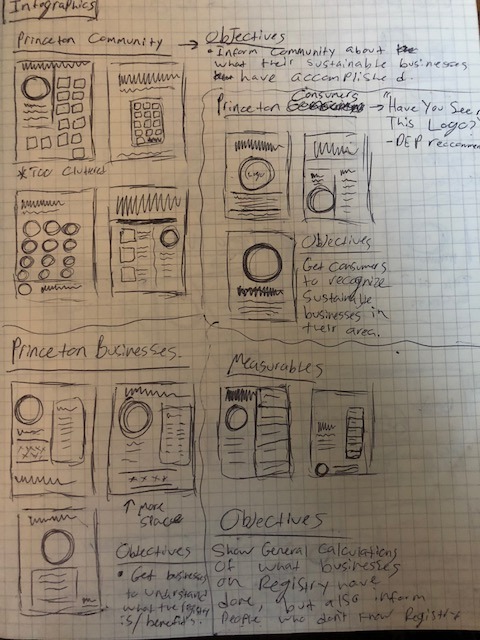 Infographics
Princeton Community →
Objectives
• Inform Community about
what their sustainable businesses
have accomplished.
* Too Cluttered
Princeton Consumers →
"Have You Seen
This Logo?
- DEP reccomen
Logo
Objectives
Get consumers
to recognize
sustainable
businesses in
their area.
Princeton Businesses.
↑ more
space
Objectives
• Get businesses
to understand
what the registry
is/benefits.
Measurables
Objectives
Show General calculations
of what businesses
on Registry have
done, but also inform
People who don't know Registry